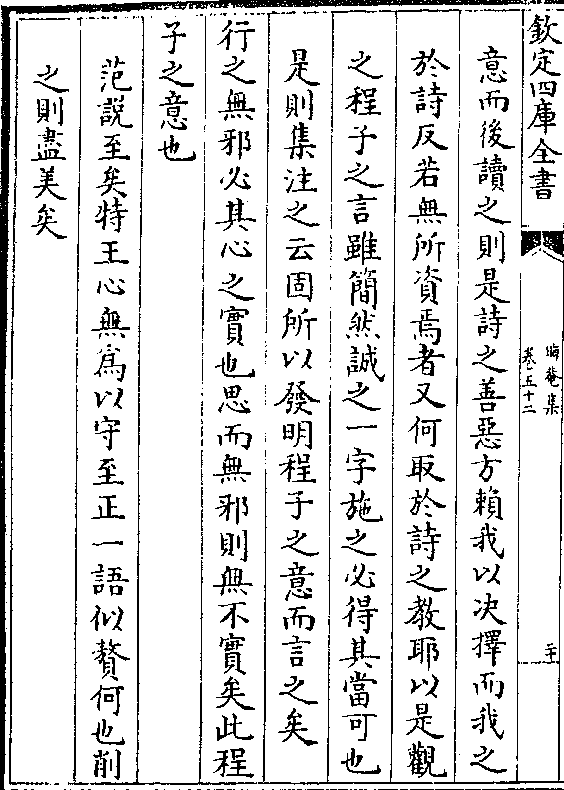 欽定四庫全書
晦菴集
卷五十二
二十
意而後讀之則是詩之善惡方賴我以决擇而我之
於詩反若無所資焉者又何取於詩之教耶以是觀
之程子之言雖簡然誠之一字施之必得其當可也
是則集注之云固所以發明程子之意而言之矣
行之無邪必其心之實也思而無邪則無不實矣此程
子之意也
范說至矣特王心無爲以守至正一語似贅何也削
之則盡美矣